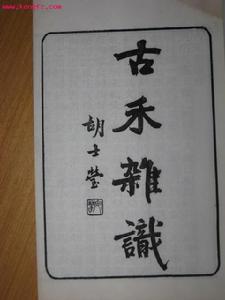 www.kongfz.com
古禾雜識
胡士瑩